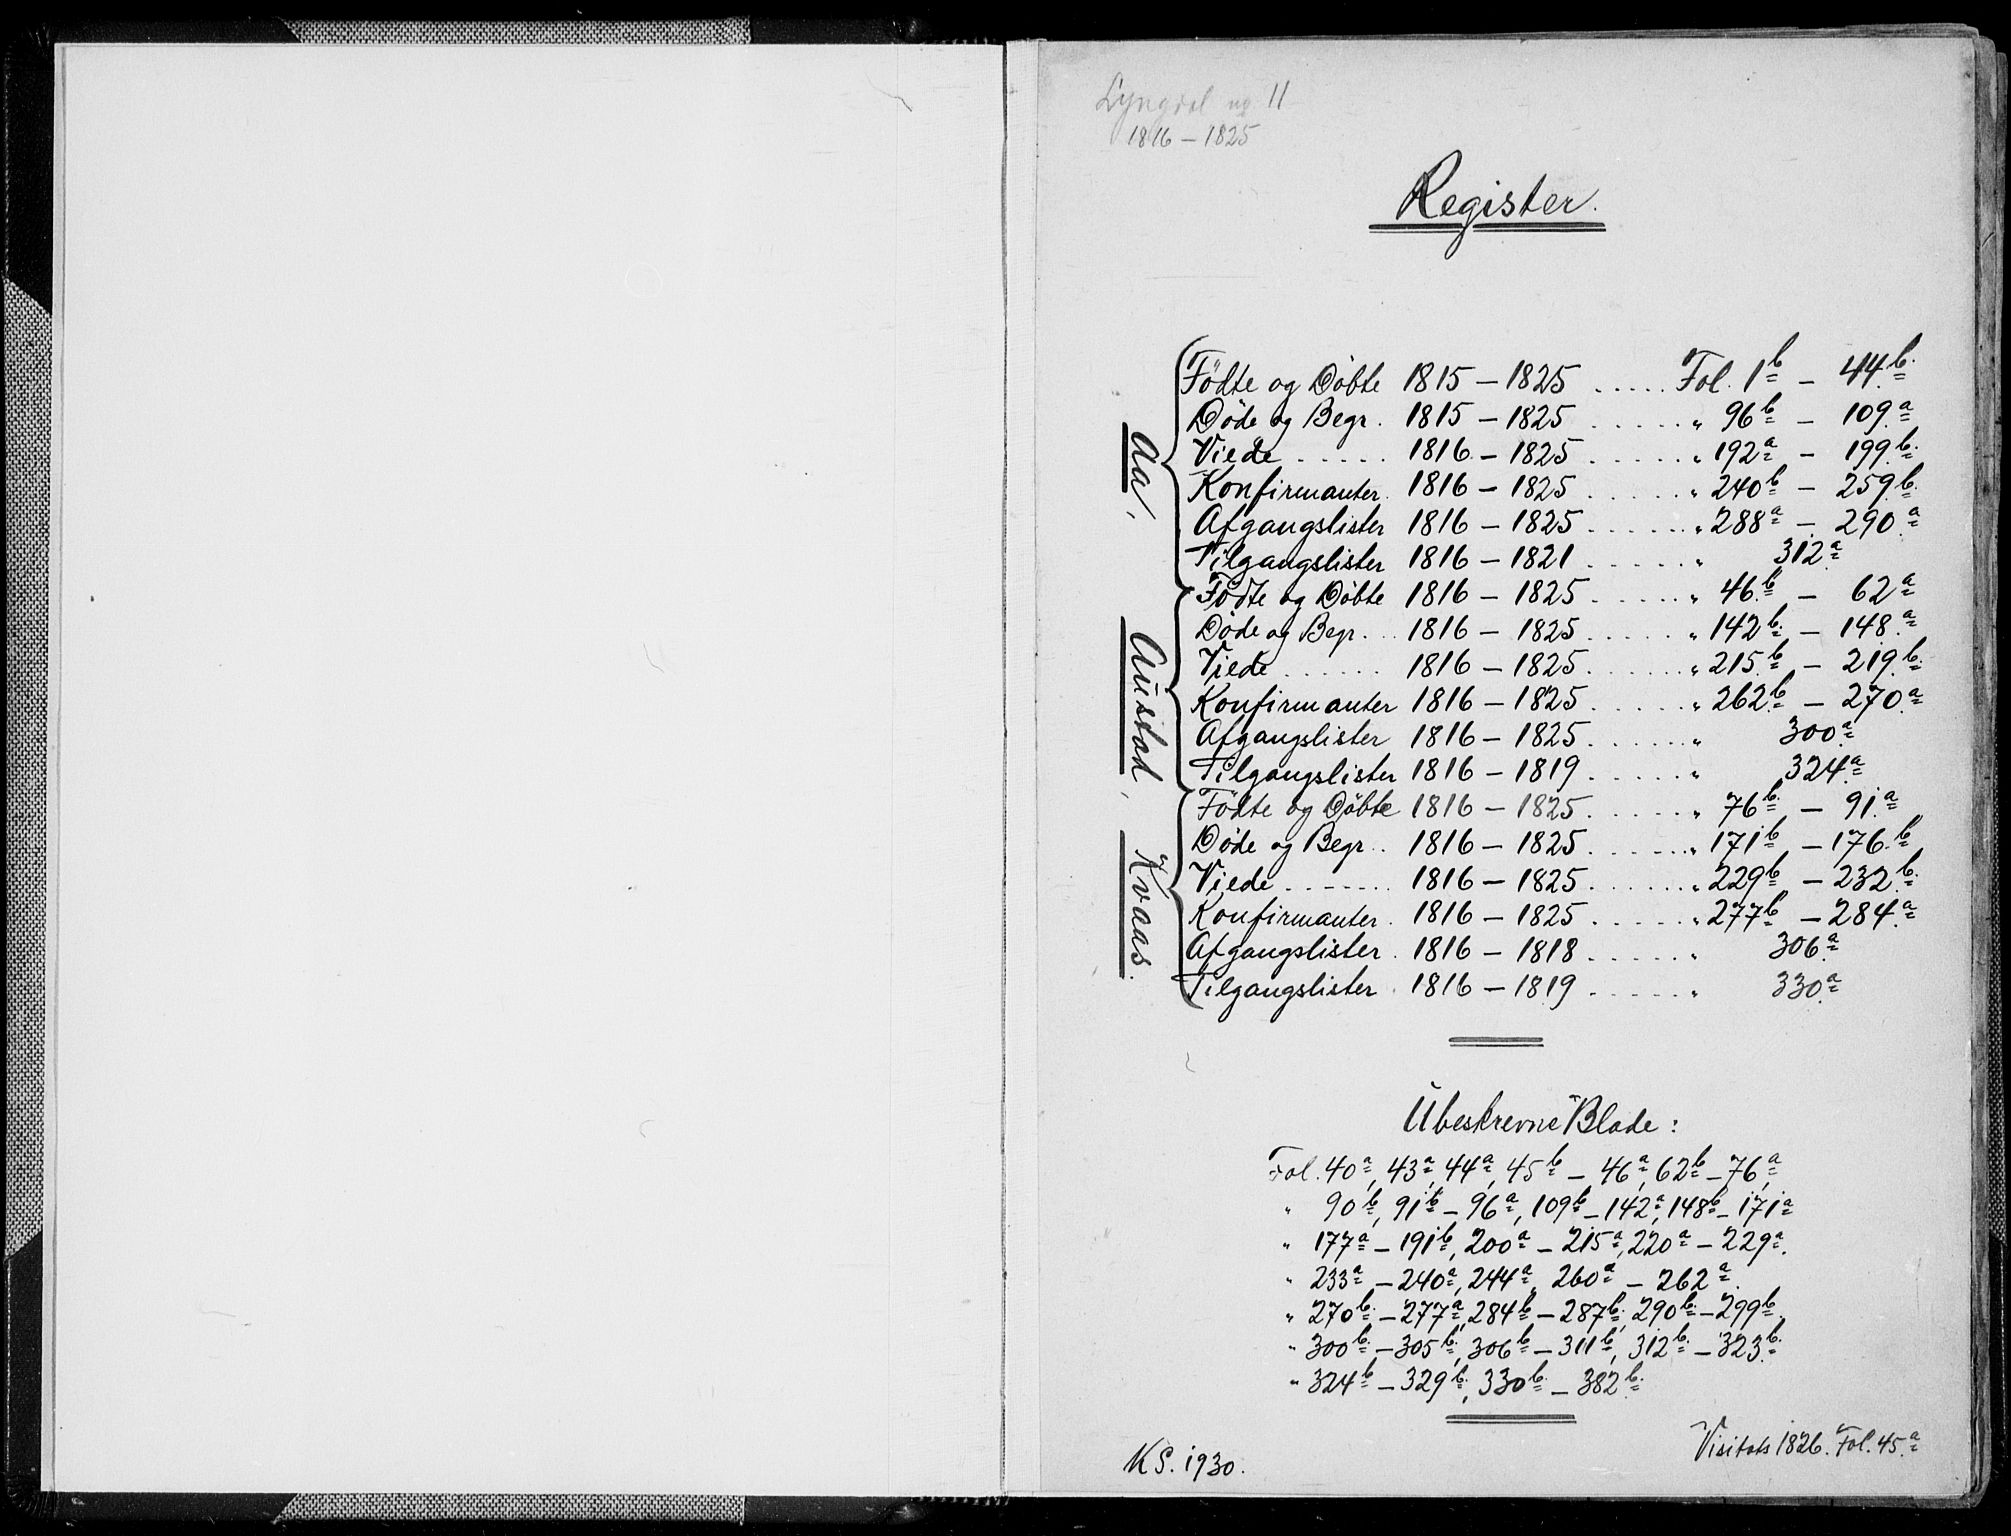 Lyngdal no 11
1816 – 1825
Register.
Aa,
Födte og Döbte 1815 – 1825 ..... Fol. 1b – 44b.
Döde og Begr. 1815 – 1825 ..... " 96b – 109a
Viede ..... 1816 – 1825 ..... " 192a – 199b.
Konfirmanter. 1816 – 1825 ..... " 240b – 259b.
Afgangslister 1816 – 1825 ..... " 288a – 290a
Tilgangslister 1816 – 1821 ..... " 312a
Austad,
Födte og Döbte 1816 – 1825 ..... " 46b – 62a
Döde og Begr. .. 1816 – 1825 ..... " 142b – 148a
Viede ...... 1816 – 1825 ..... " 215b – 219b.
Konfirmanter 1816 – 1825 ..... " 262b – 270a
Afgangslister 1816 – 1825 ..... " 300a
Tilgangslister 1816 – 1819 ..... " 324a
Kvaas.
Födte og Döbte 1816 – 1825 ..... " 76b – 91a
Döde og Begr. . 1816 – 1825 ..... " 171b – 176b
Viede ....... 1816 – 1825 ..... " 229b – 232b.
Konfirmanter. 1816 – 1825 ..... " 277b – 284a
Afgangslister. 1816 – 1818 ..... " 306a
Tilgangslister. 1816 – 1819 ..... " 330a
Ubeskrevne Blade:
Fol. 40a, 43a, 44a, 45b – 46a, 62b – 76a,
" 90b, 91b – 96a, 109b – 142a, 148b – 171a
" 177a – 191b, 200a – 215a, 220a – 229a.
" 233a – 240a, 244a, 260a – 262a.
" 270b – 277a, 284b – 287b, 290b – 299b.
" 300b – 305b, 306b – 311b, 312b – 323b.
" 324b – 329b, 330b – 382b.
Visitats 1826. Fol. 45a
KS. 1930.